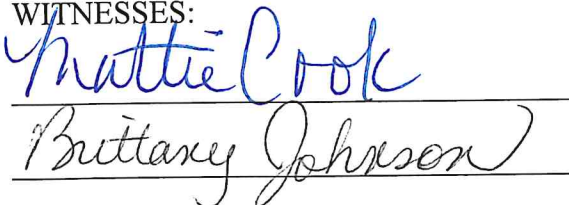 WITNESSES:
Mattie Cook
Brittany Johnson